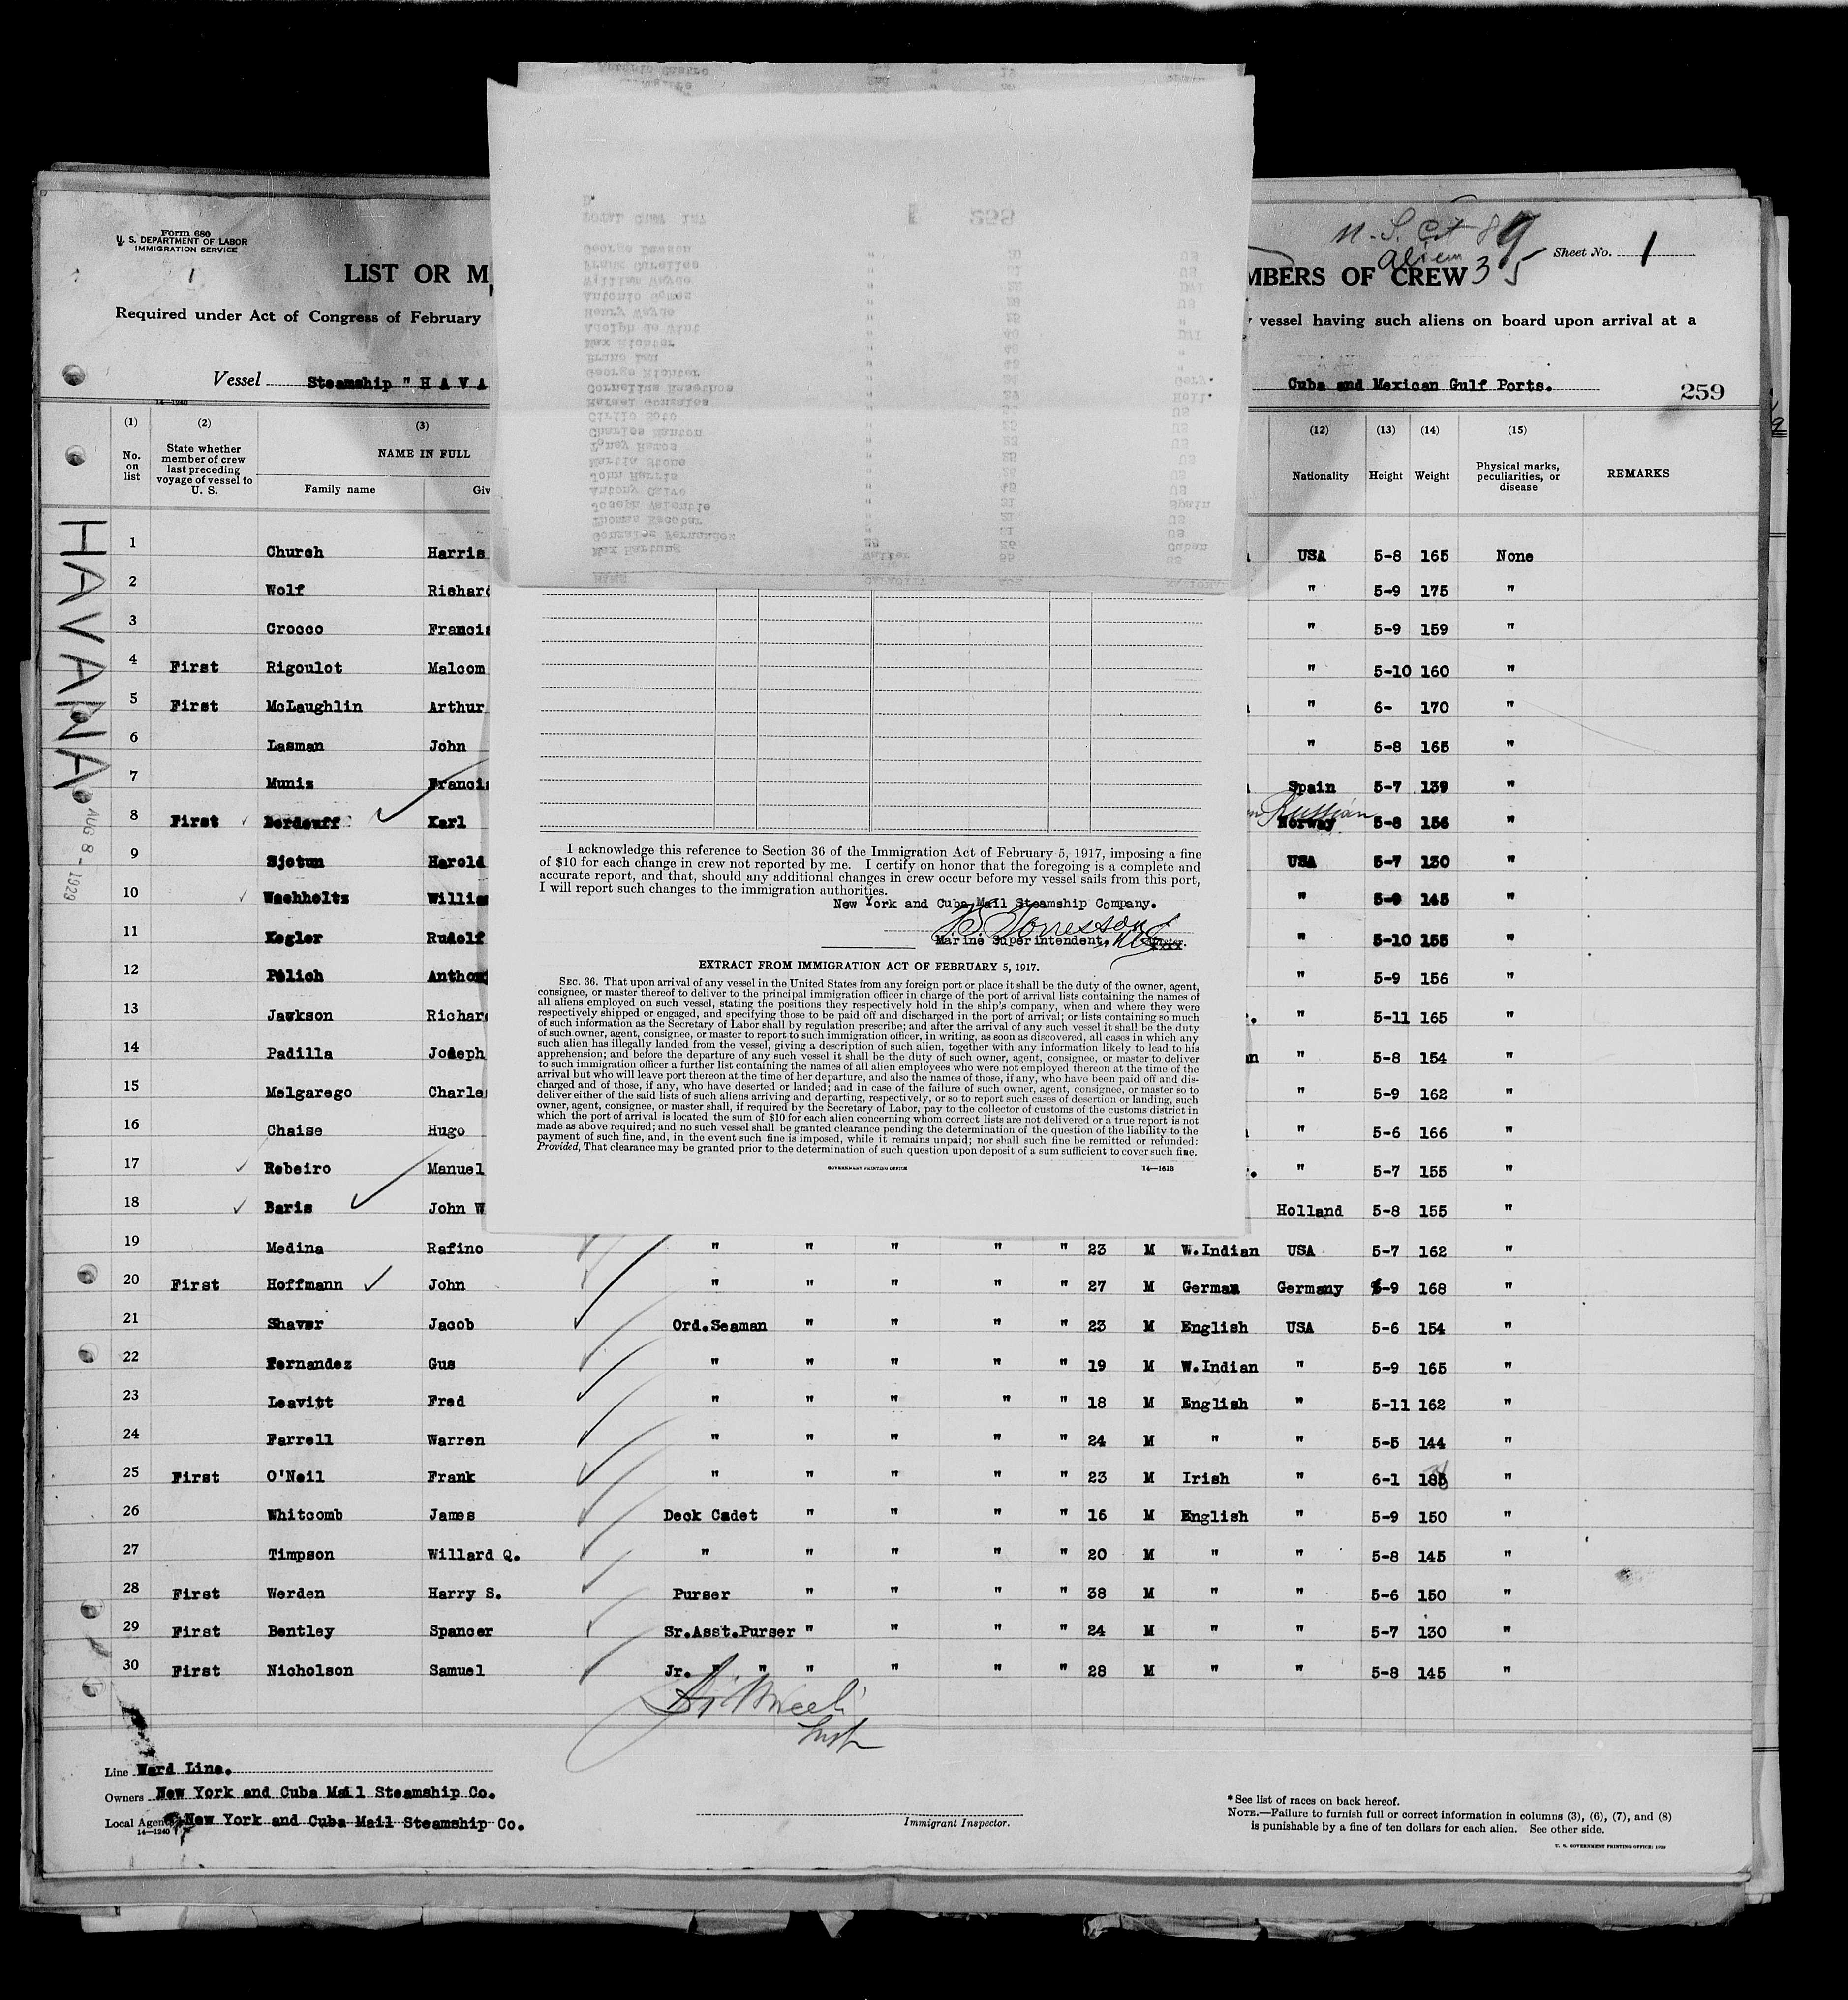 Form 680
U. S. DEPARTMENT OF LABOR
IMMIGRATION SERVICE
1
LIST OR M
MBERS OF CREW
Aliens 35
Sheet No. 1
Required under Act of Congress of February
vessel having such aliens on board upon arrival at a
Vessel Steamship "HAVA
Cuba and Mexican Gulf Ports.
259
14—1240
(1) (2) (3) (12) (13) (14) (15)
No. on list
State whether member of crew last preceding voyage of vessel to U. S.
NAME IN FULL
Family name Giv
Nationality Height Weight
Physical marks, peculiarities, or disease
REMARKS
HAVANA
AUG 8 - 1929
1 Church Harris USA 5-8 165 None
2 Wolf Richard " 5-9 175 "
3 Crocco Francis " 5-9 159 "
4 First Rigoulot Malcom " 5-10 160 "
5 First McLaughlin Arthur " 6- 170 "
6 Lasman John " 5-8 165 "
7 Muniz Francis Spain 5-7 139 "
Russian
8 First Berdauff Karl Norway 5-8 156 "
9 Sjotun Harold USA 5-7 130 "
10 Wachholtz Willia " 5-9 145 "
11 Kegler Rudolf " 5-10 155 "
12 Pelich Anthony " 5-9 156 "
13 Jawkson Richar " 5-11 165 "
14 Padilla Joseph " 5-8 154 "
15 Melgarego Charle " 5-9 162 "
16 Chaise Hugo " 5-6 166 "
17 Rebeiro Manuel " 5-7 155 "
18 Baris John W Holland 5-8 155 "
19 Medina Rafino " " " " " 23 M W.Indian USA 5-7 162 "
20 First Hoffmann John " " " " " 27 M German Germany 5-9 168 "
21 Shaver Jacob Ord.Seaman " " " " 23 M English USA 5-6 154 "
22 Fernandez Gus " " " " " 19 M W.Indian " 5-9 165 "
23 Leavitt Fred " " " " " 18 M English " 5-11 162 "
24 Farrell Warren " " " " " 24 M " " 5-5 144 "
25 First O'Neil Frank " " " " " 23 M Irish " 6-1 185 "
26 Whitcomb James Deck Cadet " " " " 16 M English " 5-9 150 "
27 Timpson Willard Q. " " " " " 20 M " " 5-8 145 "
28 First Werden Harry S. Purser " " " " 38 M " " 5-6 150 "
29 First Bentley Spencer Sr.Asst.Purser " " " " 24 M " " 5-7 130 "
30 First Nicholson Samuel Jr. " " " " " " 28 M " " 5-8 145 "
Line Ward Line.
Owners New York and Cuba Mail Steamship Co.
Local Agents New York and Cuba Mail Steamship Co.
14—1240
Immigrant Inspector.
*See list of races on back hereof.
NOTE.—Failure to furnish full or correct information in columns (3), (6), (7), and (8)
is punishable by a fine of ten dollars for each alien. See other side.
U. S. GOVERNMENT PRINTING OFFICE: 1929
Antonio Castro 2nd " 19
TOTAL CREW 187 258
George Dawson " 20 US
Frank Carelles " 21 US
William Wayde " 22 DVI
Antonio Gomez " 26 US
Henry Wayde " 25 "
Adolph de Wint " 40 DVI
Max Richter " 48 "
Bruno Max "
George Richter " Gery.
Cornelius Rasethos " 24 Holl.
Rafael Gonzales " 29 US
Cirilo Soto " US
Charles Manton " 25 US
Toney Ramos " 23 US
Martin Stone " 25 US
John Harris " 26 US
Antony Calvo " 48 US
Joseph Valentie " 31 Spain
Thomas Escobar " 21 US
Gonzalos Fernandos " 21 US
Max Hartung Waiter 26 Cuban
NAME CAPACITY AGE NATIONAL
I acknowledge this reference to Section 36 of the Immigration Act of February 5, 1917, imposing a fine
of $10 for each change in crew not reported by me. I certify on honor that the foregoing is a complete and
accurate report, and that, should any additional changes in crew occur before my vessel sails from this port,
I will report such changes to the immigration authorities.
New York and Cuba Mail Steamship Company.
Marine Superintendent.
EXTRACT FROM IMMIGRATION ACT OF FEBRUARY 5, 1917.
SEC. 36. That upon arrival of any vessel in the United States from any foreign port or place it shall be the duty of the owner, agent,
consignee, or master thereof to deliver to the principal immigration officer in charge of the port of arrival lists containing the names of
all aliens employed on such vessel, stating the positions they respectively hold in the ship's company, when and where they were
respectively shipped or engaged, and specifying those to be paid off and discharged in the port of arrival; or lists containing so much
of such information as the Secretary of Labor shall by regulation prescribe; and after the arrival of any such vessel it shall be the duty
of such owner, agent, consignee, or master to report to such immigration officer, in writing, as soon as discovered, all cases in which any
such alien has illegally landed from the vessel, giving a description of such alien, together with any information likely to lead to his
apprehension; and before the departure of any such vessel it shall be the duty of such owner, agent, consignee, or master to deliver
to such immigration officer a further list containing the names of all alien employees who were not employed thereon at the time of the
arrival but who will leave port thereon at the time of her departure, and also the names of those, if any, who have been paid off and dis-
charged and of those, if any, who have deserted or landed; and in case of the failure of such owner, agent, consignee, or master so to
deliver either of the said lists of such aliens arriving and departing, respectively, or so to report such cases of desertion or landing, such
owner, agent, consignee, or master shall, if required by the Secretary of Labor, pay to the collector of customs of the customs district in
which the port of arrival is located the sum of $10 for each alien concerning whom correct lists are not delivered or a true report is not
made as above required; and no such vessel shall be granted clearance pending the determination of the question of the liability to the
payment of such fine, and, in the event such fine is imposed, while it remains unpaid; nor shall such fine be remitted or refunded:
Provided, That clearance may be granted prior to the determination of such question upon deposit of a sum sufficient to cover such fine.
GOVERNMENT PRINTING OFFICE 14—1613